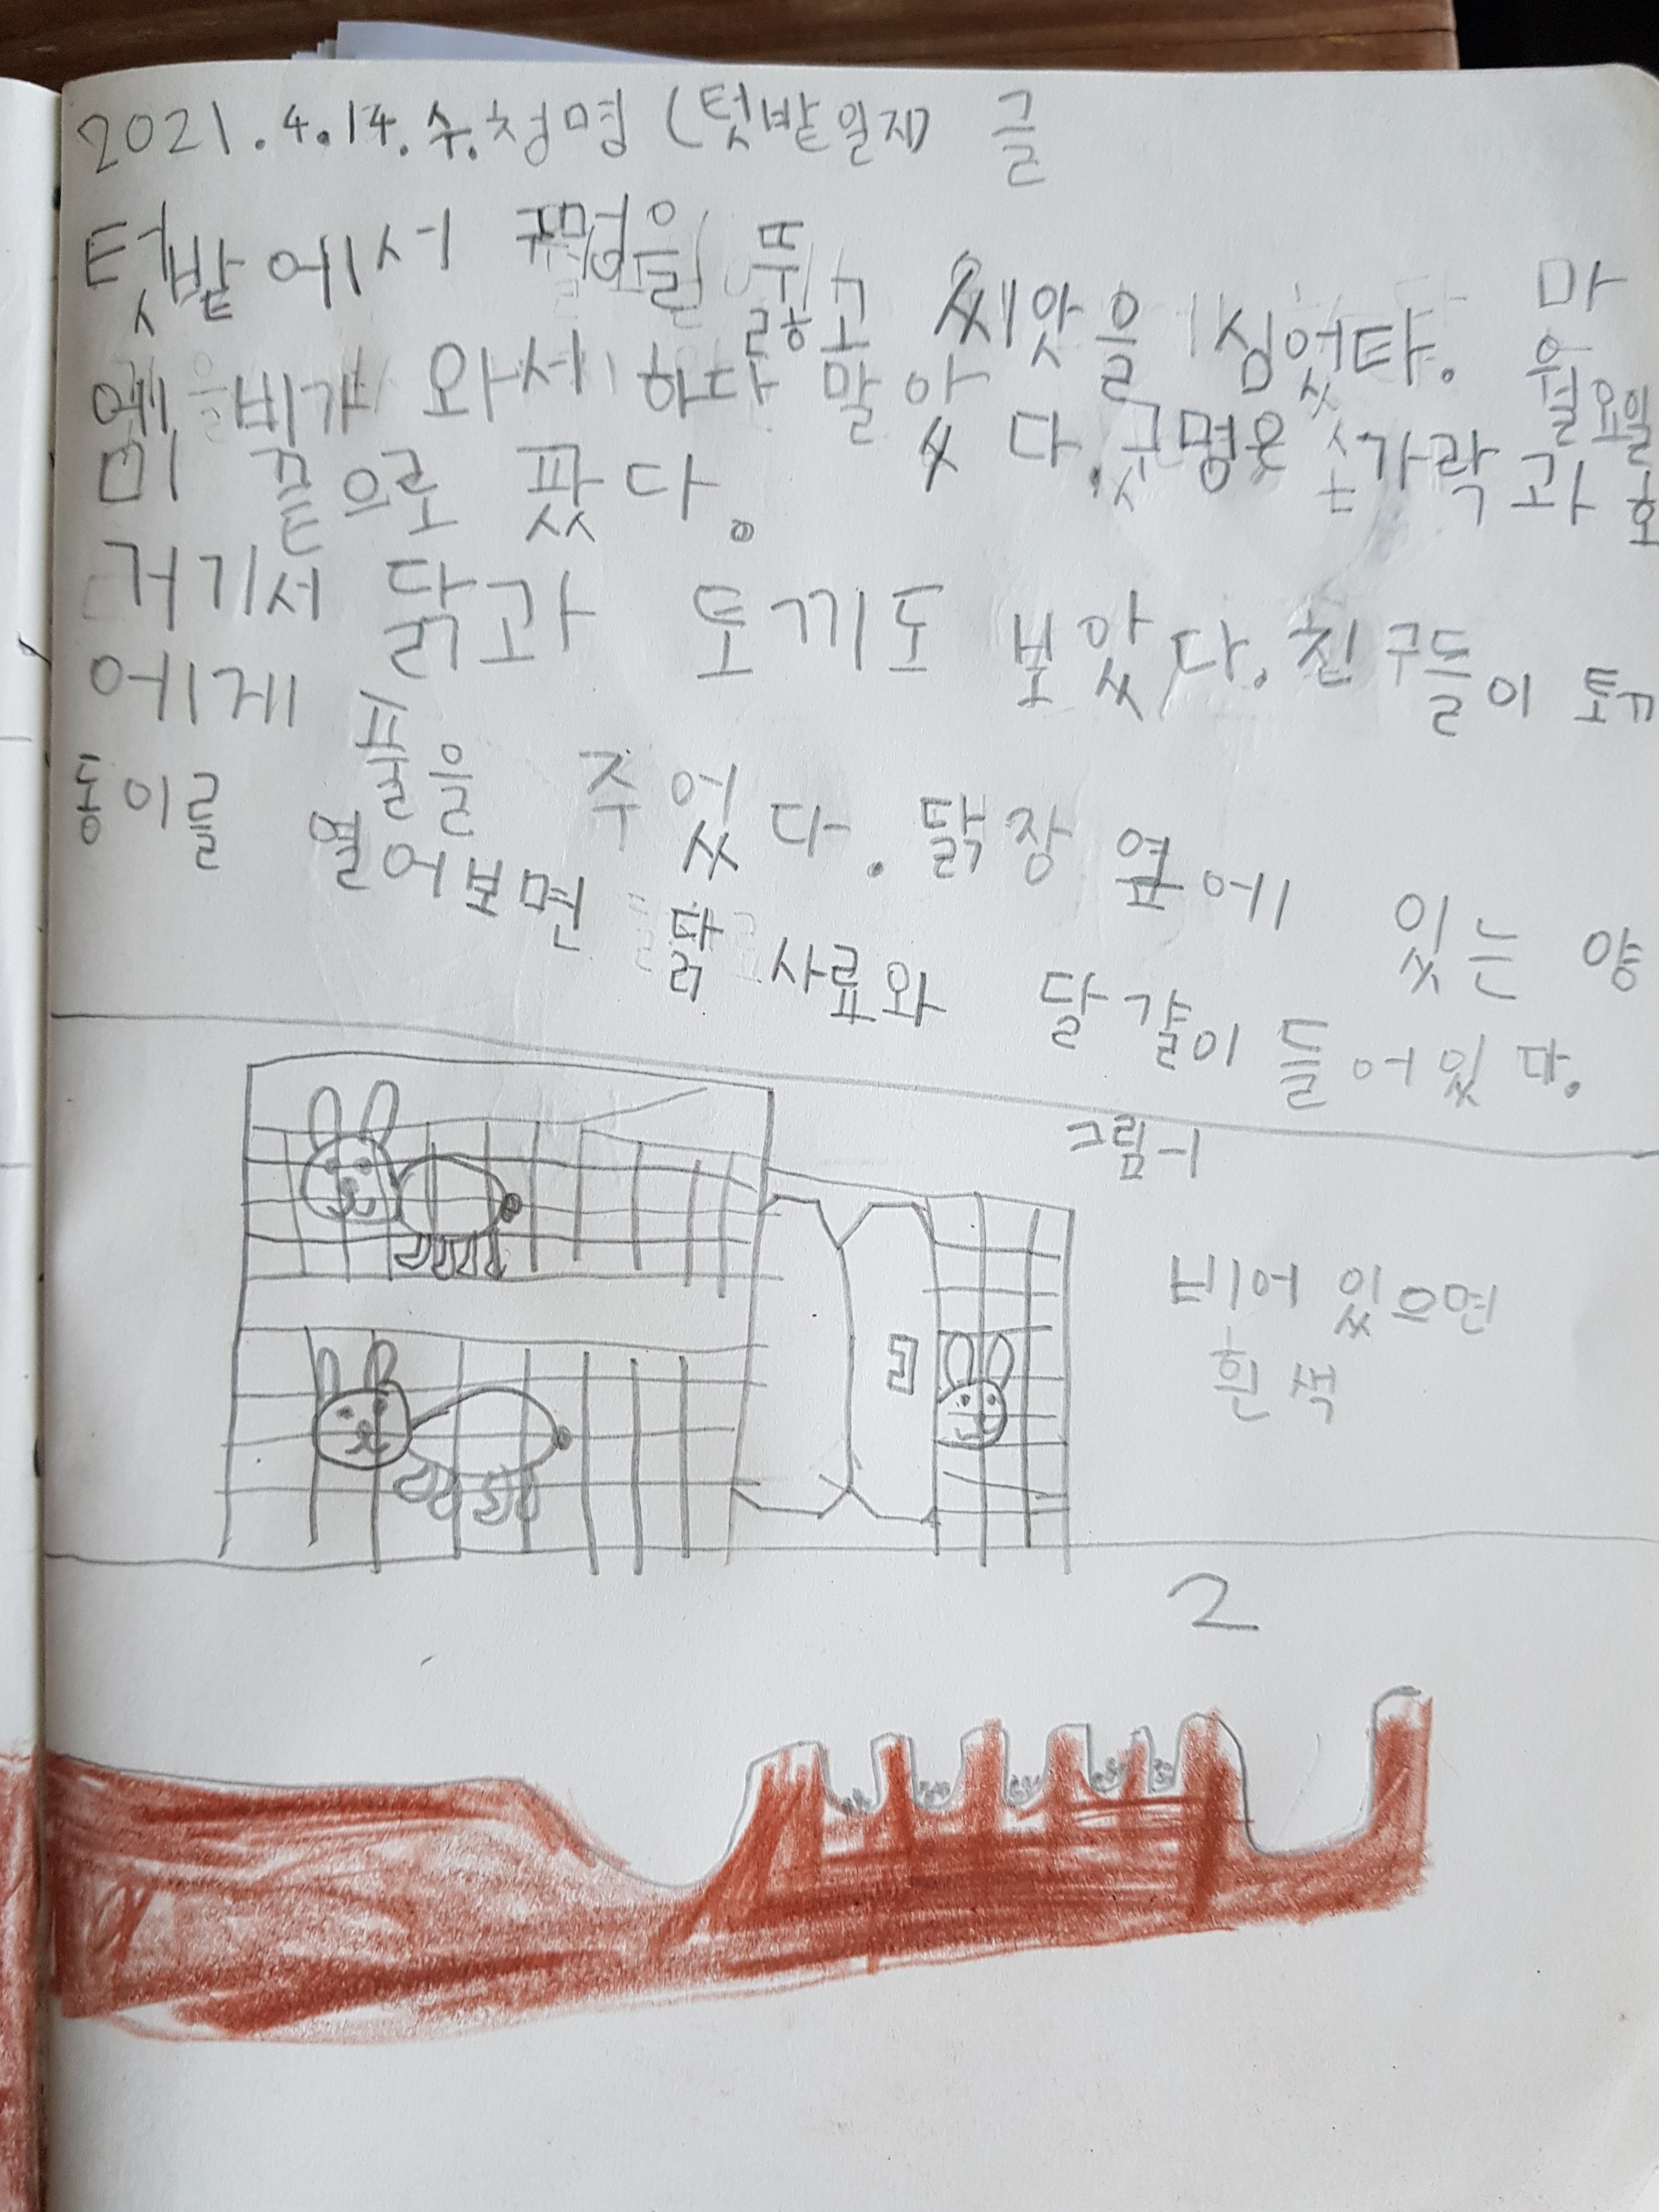 2021.4.14.수.청명(텃밭일지) 글
텃밭에서 구멍을 뚫고 씨앗을 심었다. 월요일
에 비가 와서 하다 말았다. 구멍은 손가락과 호
미 끝으로 팠다.
거기서 닭과 토끼도 보았다. 친구들이 토끼
에게 풀을 주었다. 닭장 옆에 있는 양
동이를 열어보면 닭 사료와 달걀이 들어있다.
그림-1
비어 있으면
흰색
2